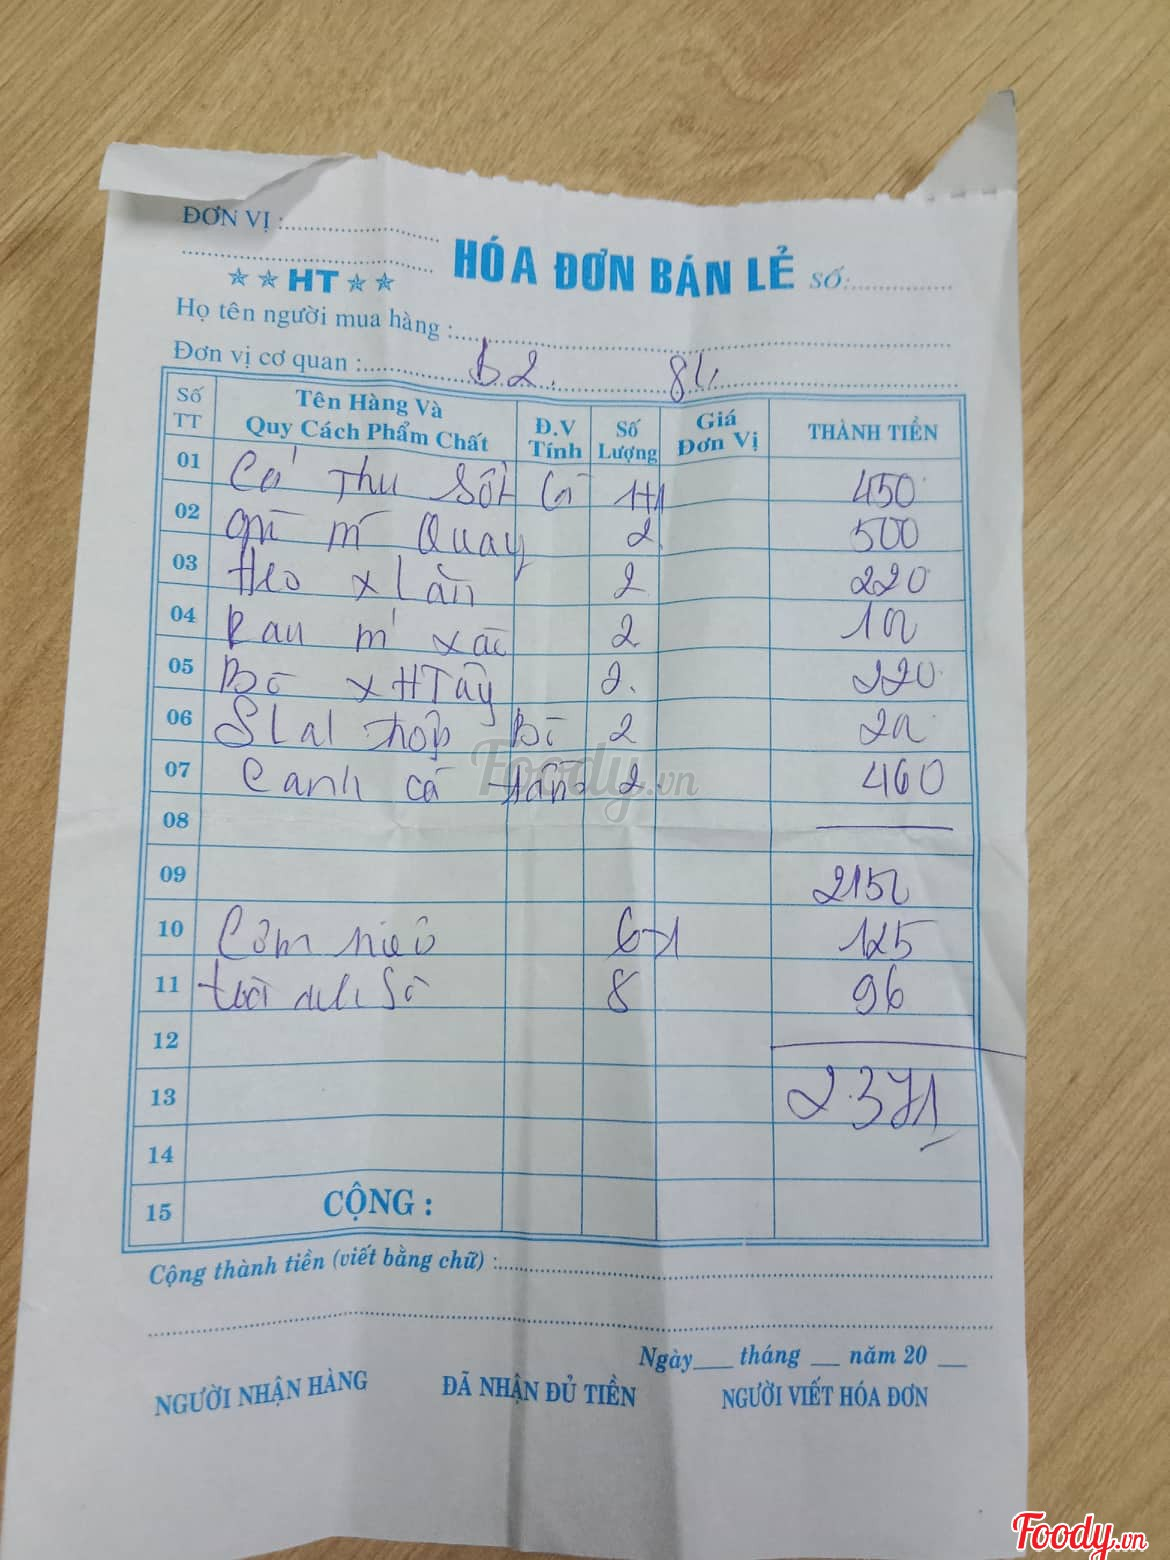 ĐƠN VỊ :
HÓA ĐƠN BÁN LẺ SỐ:
HT
Họ tên người mua hàng :
Đơn vị cơ quan : b2. 8k.
Số TT Tên Hàng Và Quy Cách Phẩm Chất Đ.V Tính Số Lượng Giá Đơn Vị THÀNH TIỀN
01 Cá Thu Sốt Cà 1+1 450
02 Quay 2 500
03 Heo x Lăn 2 220
04 Rau xào 2
05 Bò x HTây 2. 220
06 hộp Bò 2
07 Canh cá 2 460
08
09 215
10 Cơm niêu 6+1 125
11 8 96
12
13 2.371
14
15 CỘNG :
Cộng thành tiền (viết bằng chữ) :
Ngày tháng năm 20
NGƯỜI NHẬN HÀNG ĐÃ NHẬN ĐỦ TIỀN NGƯỜI VIẾT HÓA ĐƠN
Foody.vn
Foody.vn